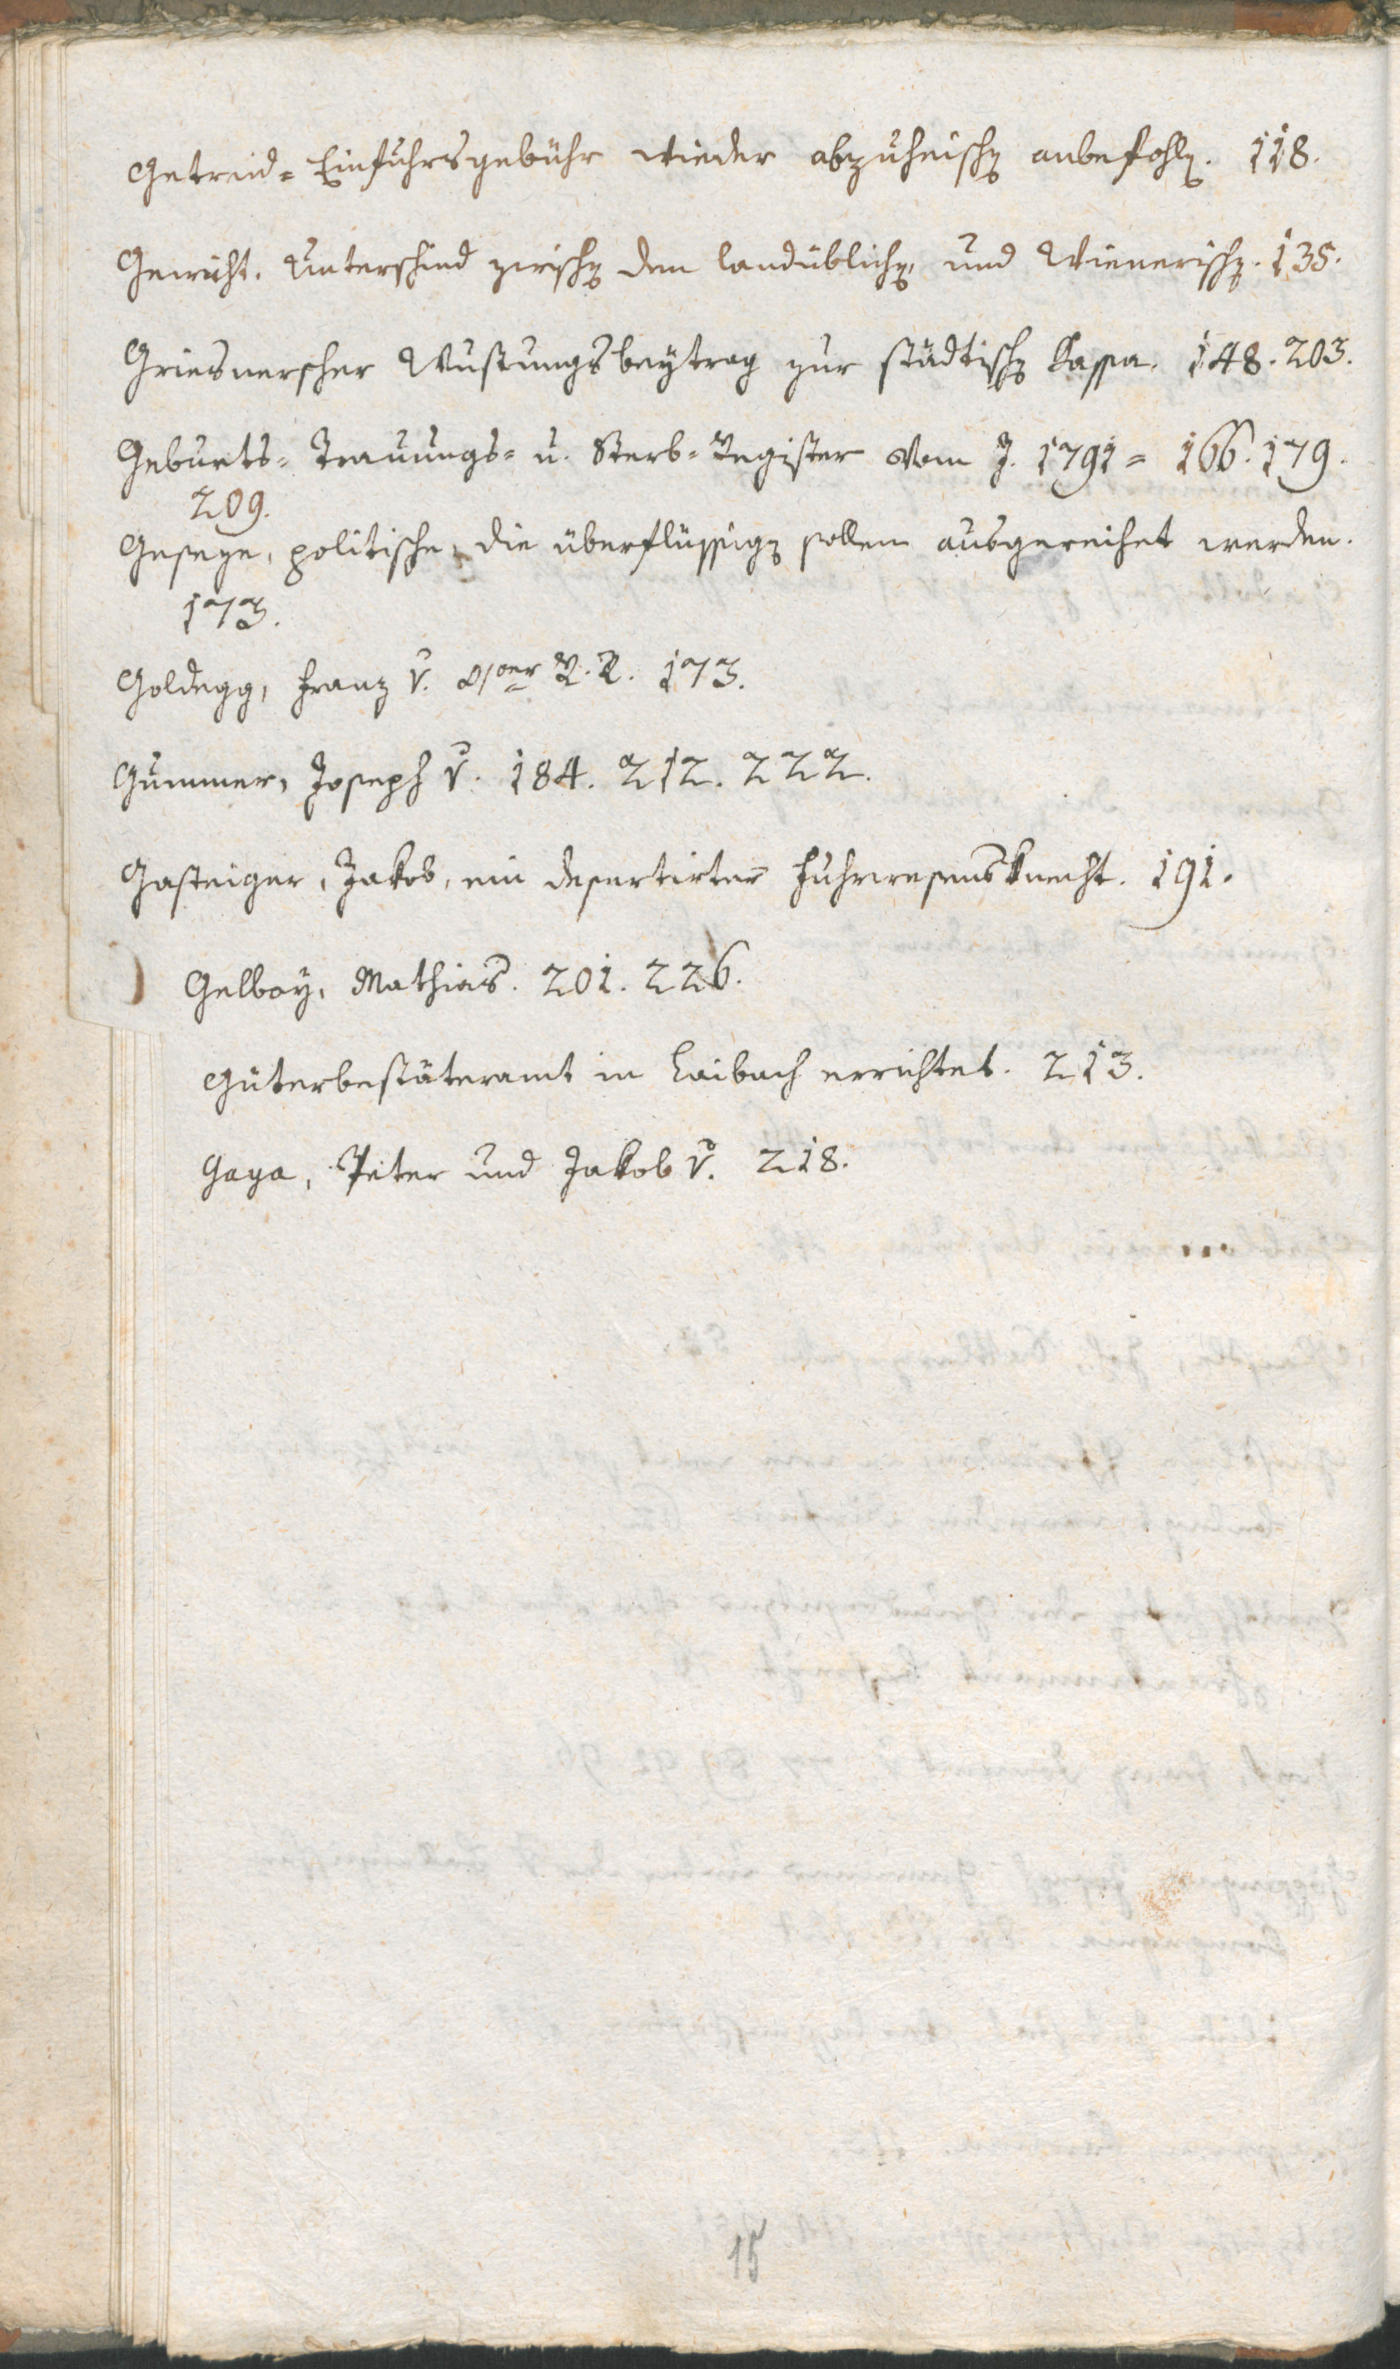 Getreid- Einfuhrsgebühr wieder abzuheischen anbefohlen. 118.
Gewicht. Unterschied zwischen dem landüblichen, und Wienerischen. 135.
Griesnerscher Wustungsbeytrag zur städtischen Kassa. 148. 203.
Geburts- Trauungs- u. Sterb- Register vom J. 1791 = 166. 179.
209.
Geseze, politische, die überflüssigen sollen ausgereihet werden.
173.
Goldegg, Franz v. R. R. 173.
Gummer, Joseph v. 184. 212. 222.
Gasteiger, Jakob, ein desertirter Fuhrwesensknecht. 191.
Gelboy, Mathias. 201. 226.
Güterbestäteramt in Laibach errichtet. 213.
Gaya, Peter und Jakob v. 218.
15